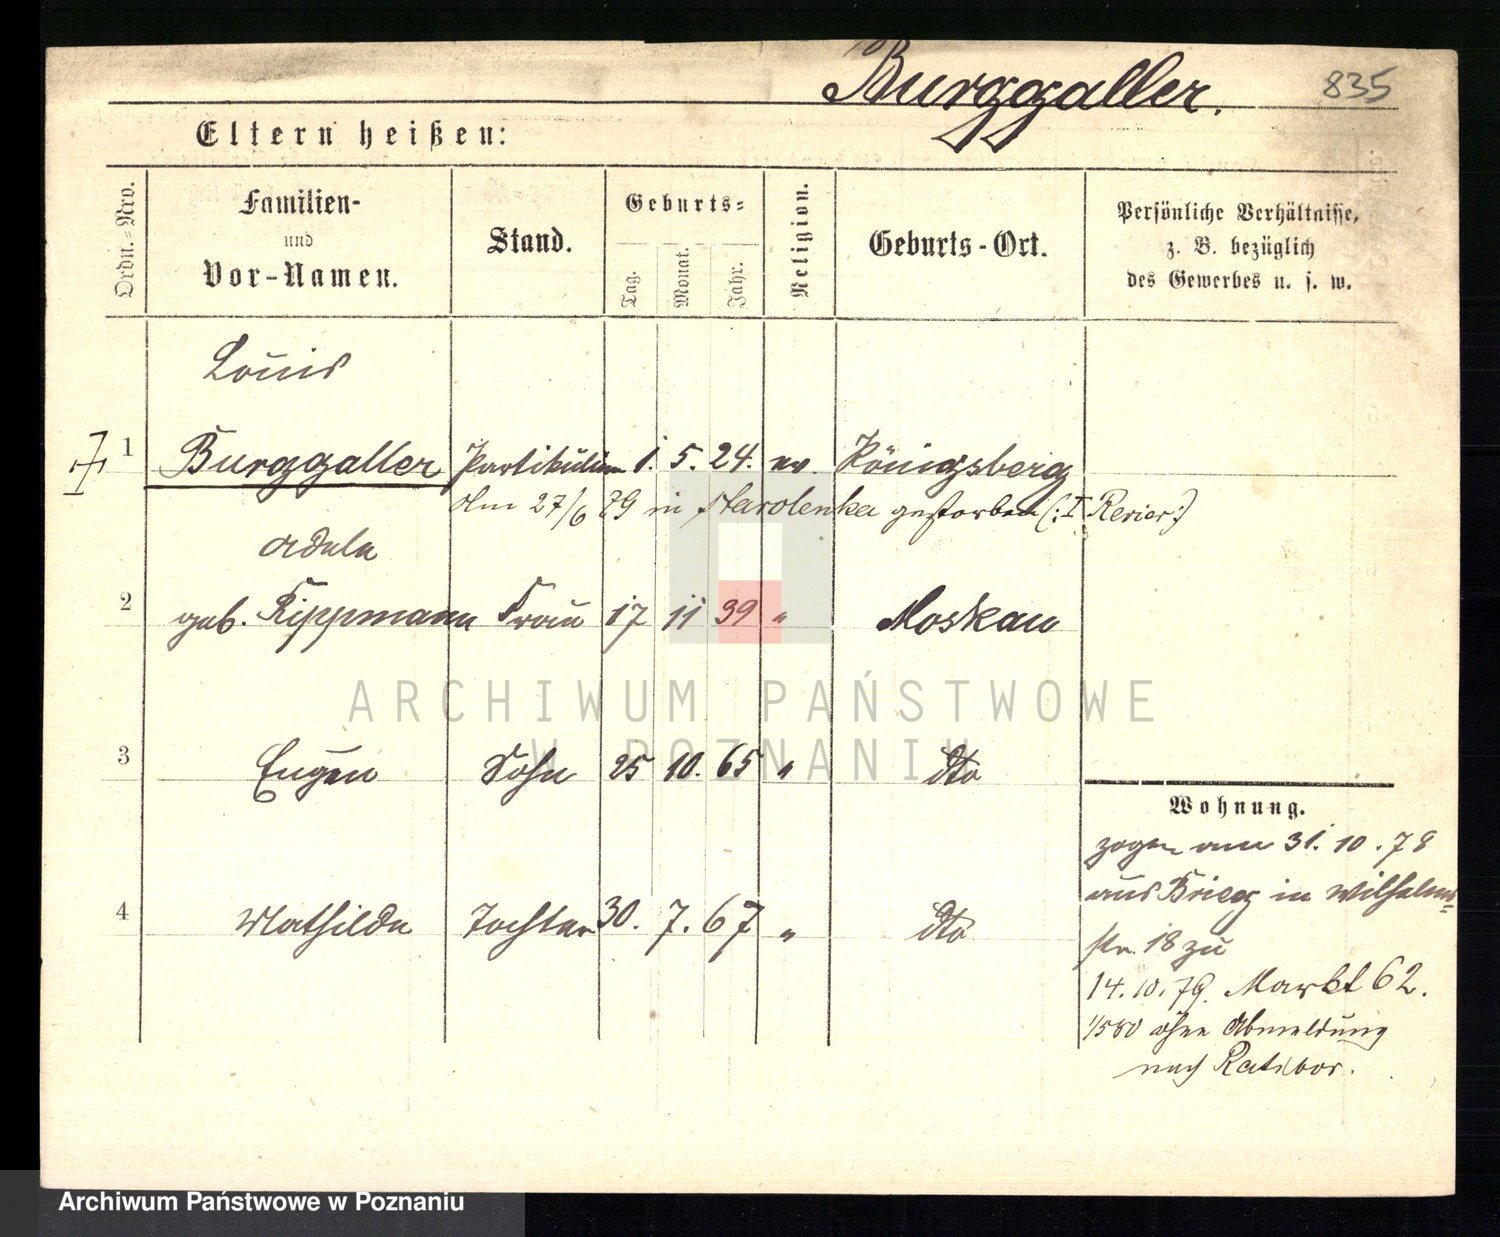 Burggaller.
835
Eltern heißen:
Ordn.=Nro.
Familien-
und
Vor-Namen.
Stand.
Geburts=
Tag.
Monat.
Jahr.
Religion.
Geburts-Ort.
Persönliche Verhältnisse,
z. B. bezüglich
des Gewerbes u. s. w.
Louis
1 Burggaller Partikulier 1. 5. 24. ev. Königsberg
Am 27/6 79 in Starolenka gestorben (: I Revier :)
Adele
2 geb. Kippmann Frau 17 11 39 " Moskau
3 Eugen Sohn 25 10. 65 " dto
4 Mathilde Tochter 30. 7. 67 " dto
Wohnung.
zogen am 31. 10. 78
aus Brieg in Wilhelms=
str. 18 zu
14. 10. 79. Markt 62.
1/5 80 ohne Abmeldung
nach Ratibor.
ARCHIWUM PAŃSTWOWE
W POZNANIU
Archiwum Państwowe w Poznaniu